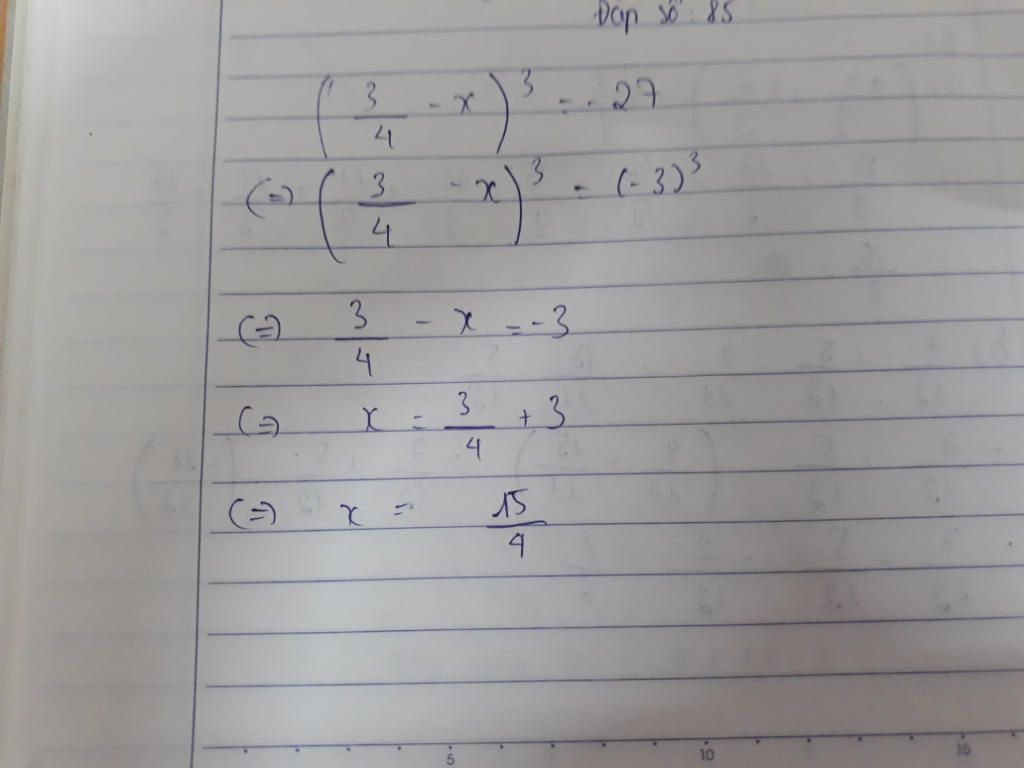 Đáp số: 85
(3/4 - x)^3 = -27
(=) (3/4 - x)^3 = (-3)^3
(=) 3/4 - x = -3
(=) x = 3/4 + 3
(=) x = 15/4
5 10 15